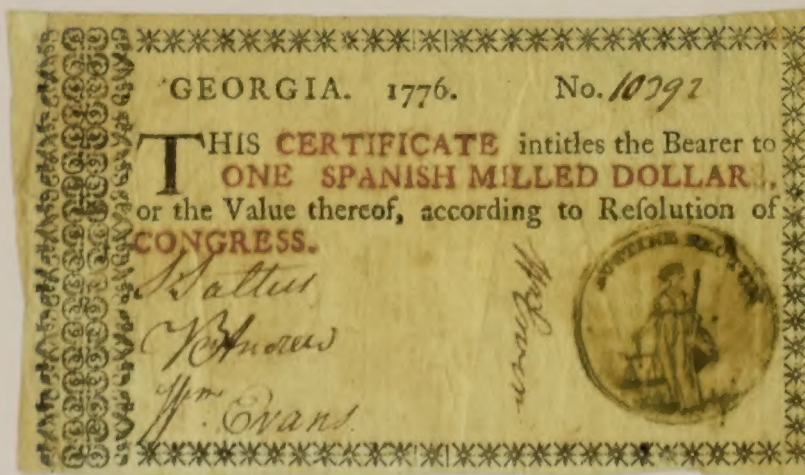 GEORGIA. 1776. No.
THIS CERTIFICATE intitles the Bearer to
ONE SPANISH MILLED DOLLAR
or the Value thereof, according to Reſolution of
CONGRESS.
Wm. Evans